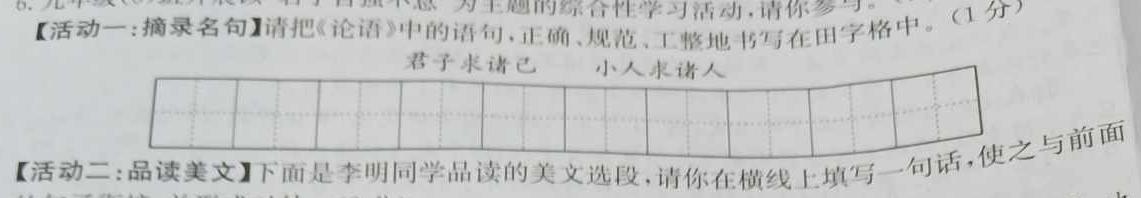 为主题的综合性学习活动,请你参与。
【活动一:摘录名句】请把《论语》中的语句,正确、规范、工整地书写在田字格中。(1分)
君子求诸己 小人求诸人
【活动二:品读美文】下面是李明同学品读的美文选段,请你在横线上填写一句话,使之与前面